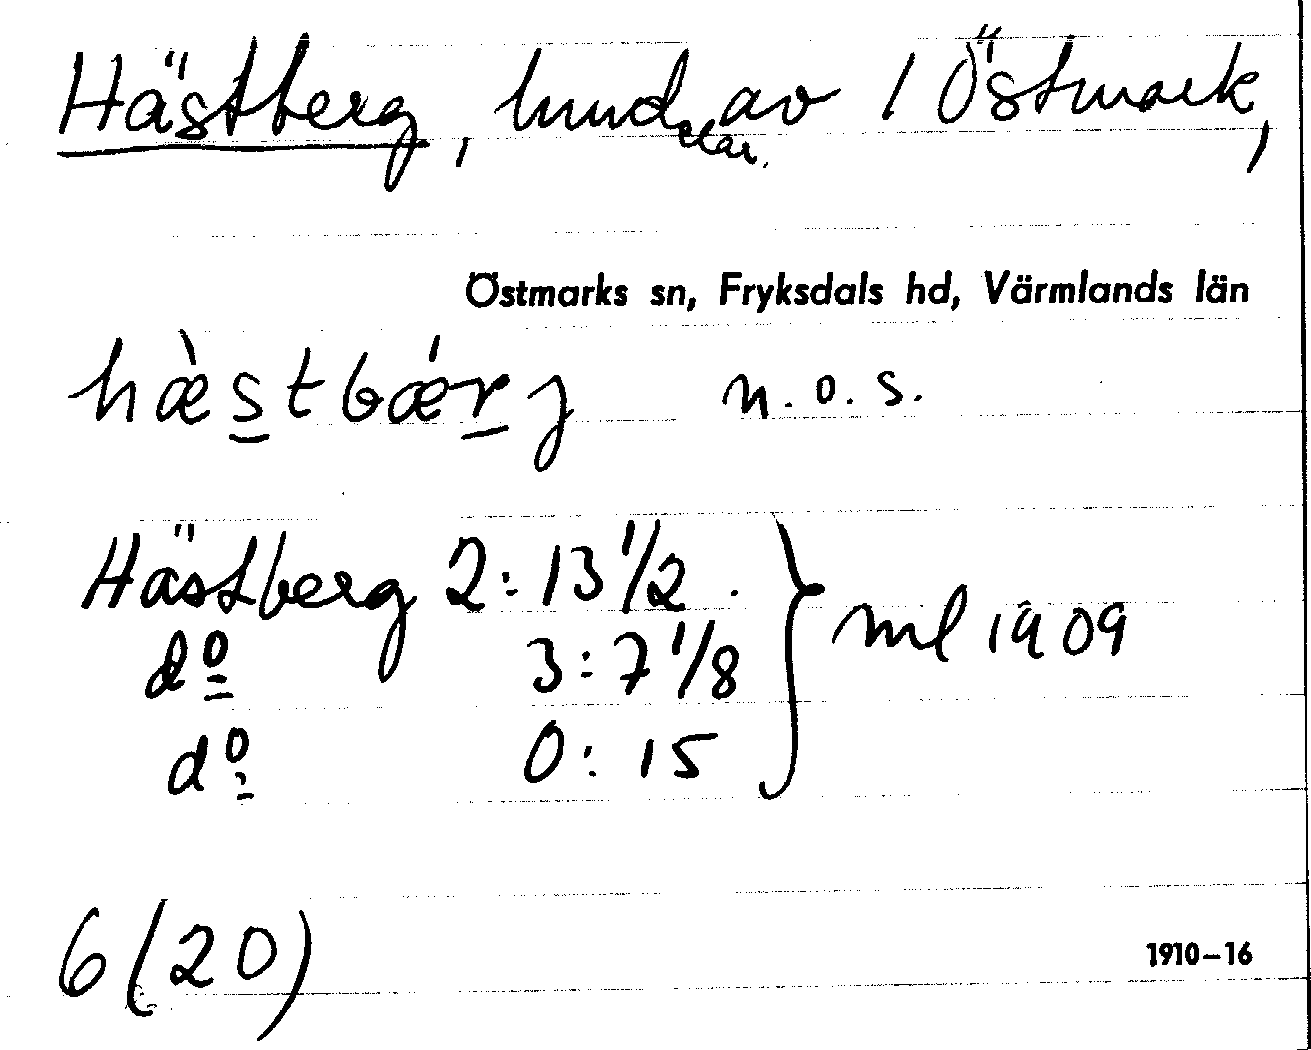 Hästberg, hmd av 1 Östmark,
Östmarks sn, Fryksdals hd, Värmlands län
hæ̀stbǽrj n.o.s.
Hästberg 2:13 1/2
dº 3:7 1/8
dº 0:15
ml 1909
6(20)
1910–16